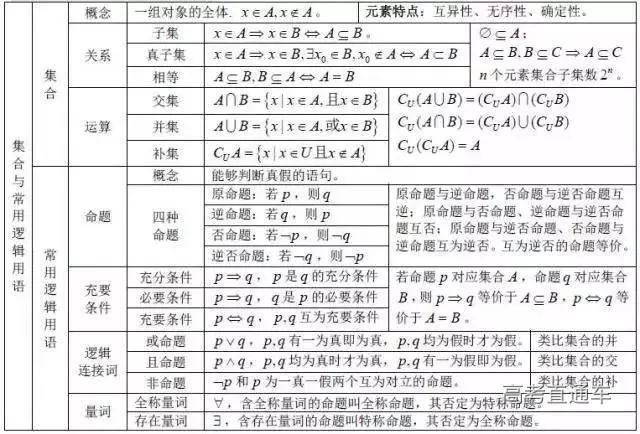 集合与常用逻辑用语
集合
概念
一组对象的全体. x∈A, x∉A 。
元素特点：互异性、无序性、确定性。
关系
子集
x∈A⇒x∈B⇔A⊆B。
真子集
x∈A⇒x∈B,∃x₀∈B,x₀∉A⇔A⊂B
相等
A⊆B,B⊆A⇔A=B
∅⊆A；
A⊆B,B⊆C⇒A⊆C
n个元素集合子集数2ⁿ。
运算
交集
A∩B={x|x∈A,且x∈B}
并集
A∪B={x|x∈A,或x∈B}
补集
C_U A={x|x∈U且x∉A}
C_U(A∪B)=(C_U A)∩(C_U B)
C_U(A∩B)=(C_U A)∪(C_U B)
C_U(C_U A)=A
常用逻辑用语
命题
概念
能够判断真假的语句。
四种
命题
原命题：若p，则q
逆命题：若q，则p
否命题：若¬p，则¬q
逆否命题：若¬q，则¬p
原命题与逆命题，否命题与逆否命题互
逆；原命题与否命题、逆命题与逆否命
题互否；原命题与逆否命题、否命题与
逆命题互为逆否。互为逆否的命题等价。
充要
条件
充分条件
p⇒q，p是q的充分条件
必要条件
p⇒q，q是p的必要条件
充要条件
p⇔q，p,q互为充要条件
若命题p对应集合A，命题q对应集合
B，则p⇒q等价于A⊆B，p⇔q等
价于A=B。
逻辑
连接词
或命题
p∨q，p,q有一为真即为真，p,q均为假时才为假。
类比集合的并
且命题
p∧q，p,q均为真时才为真，p,q有一为假即为假。
类比集合的交
非命题
¬p和p为一真一假两个互为对立的命题。
类比集合的补
量词
全称量词
∀，含全称量词的命题叫全称命题，其否定为特称命题。
存在量词
∃，含存在量词的命题叫特称命题，其否定为全称命题。
高考直通车